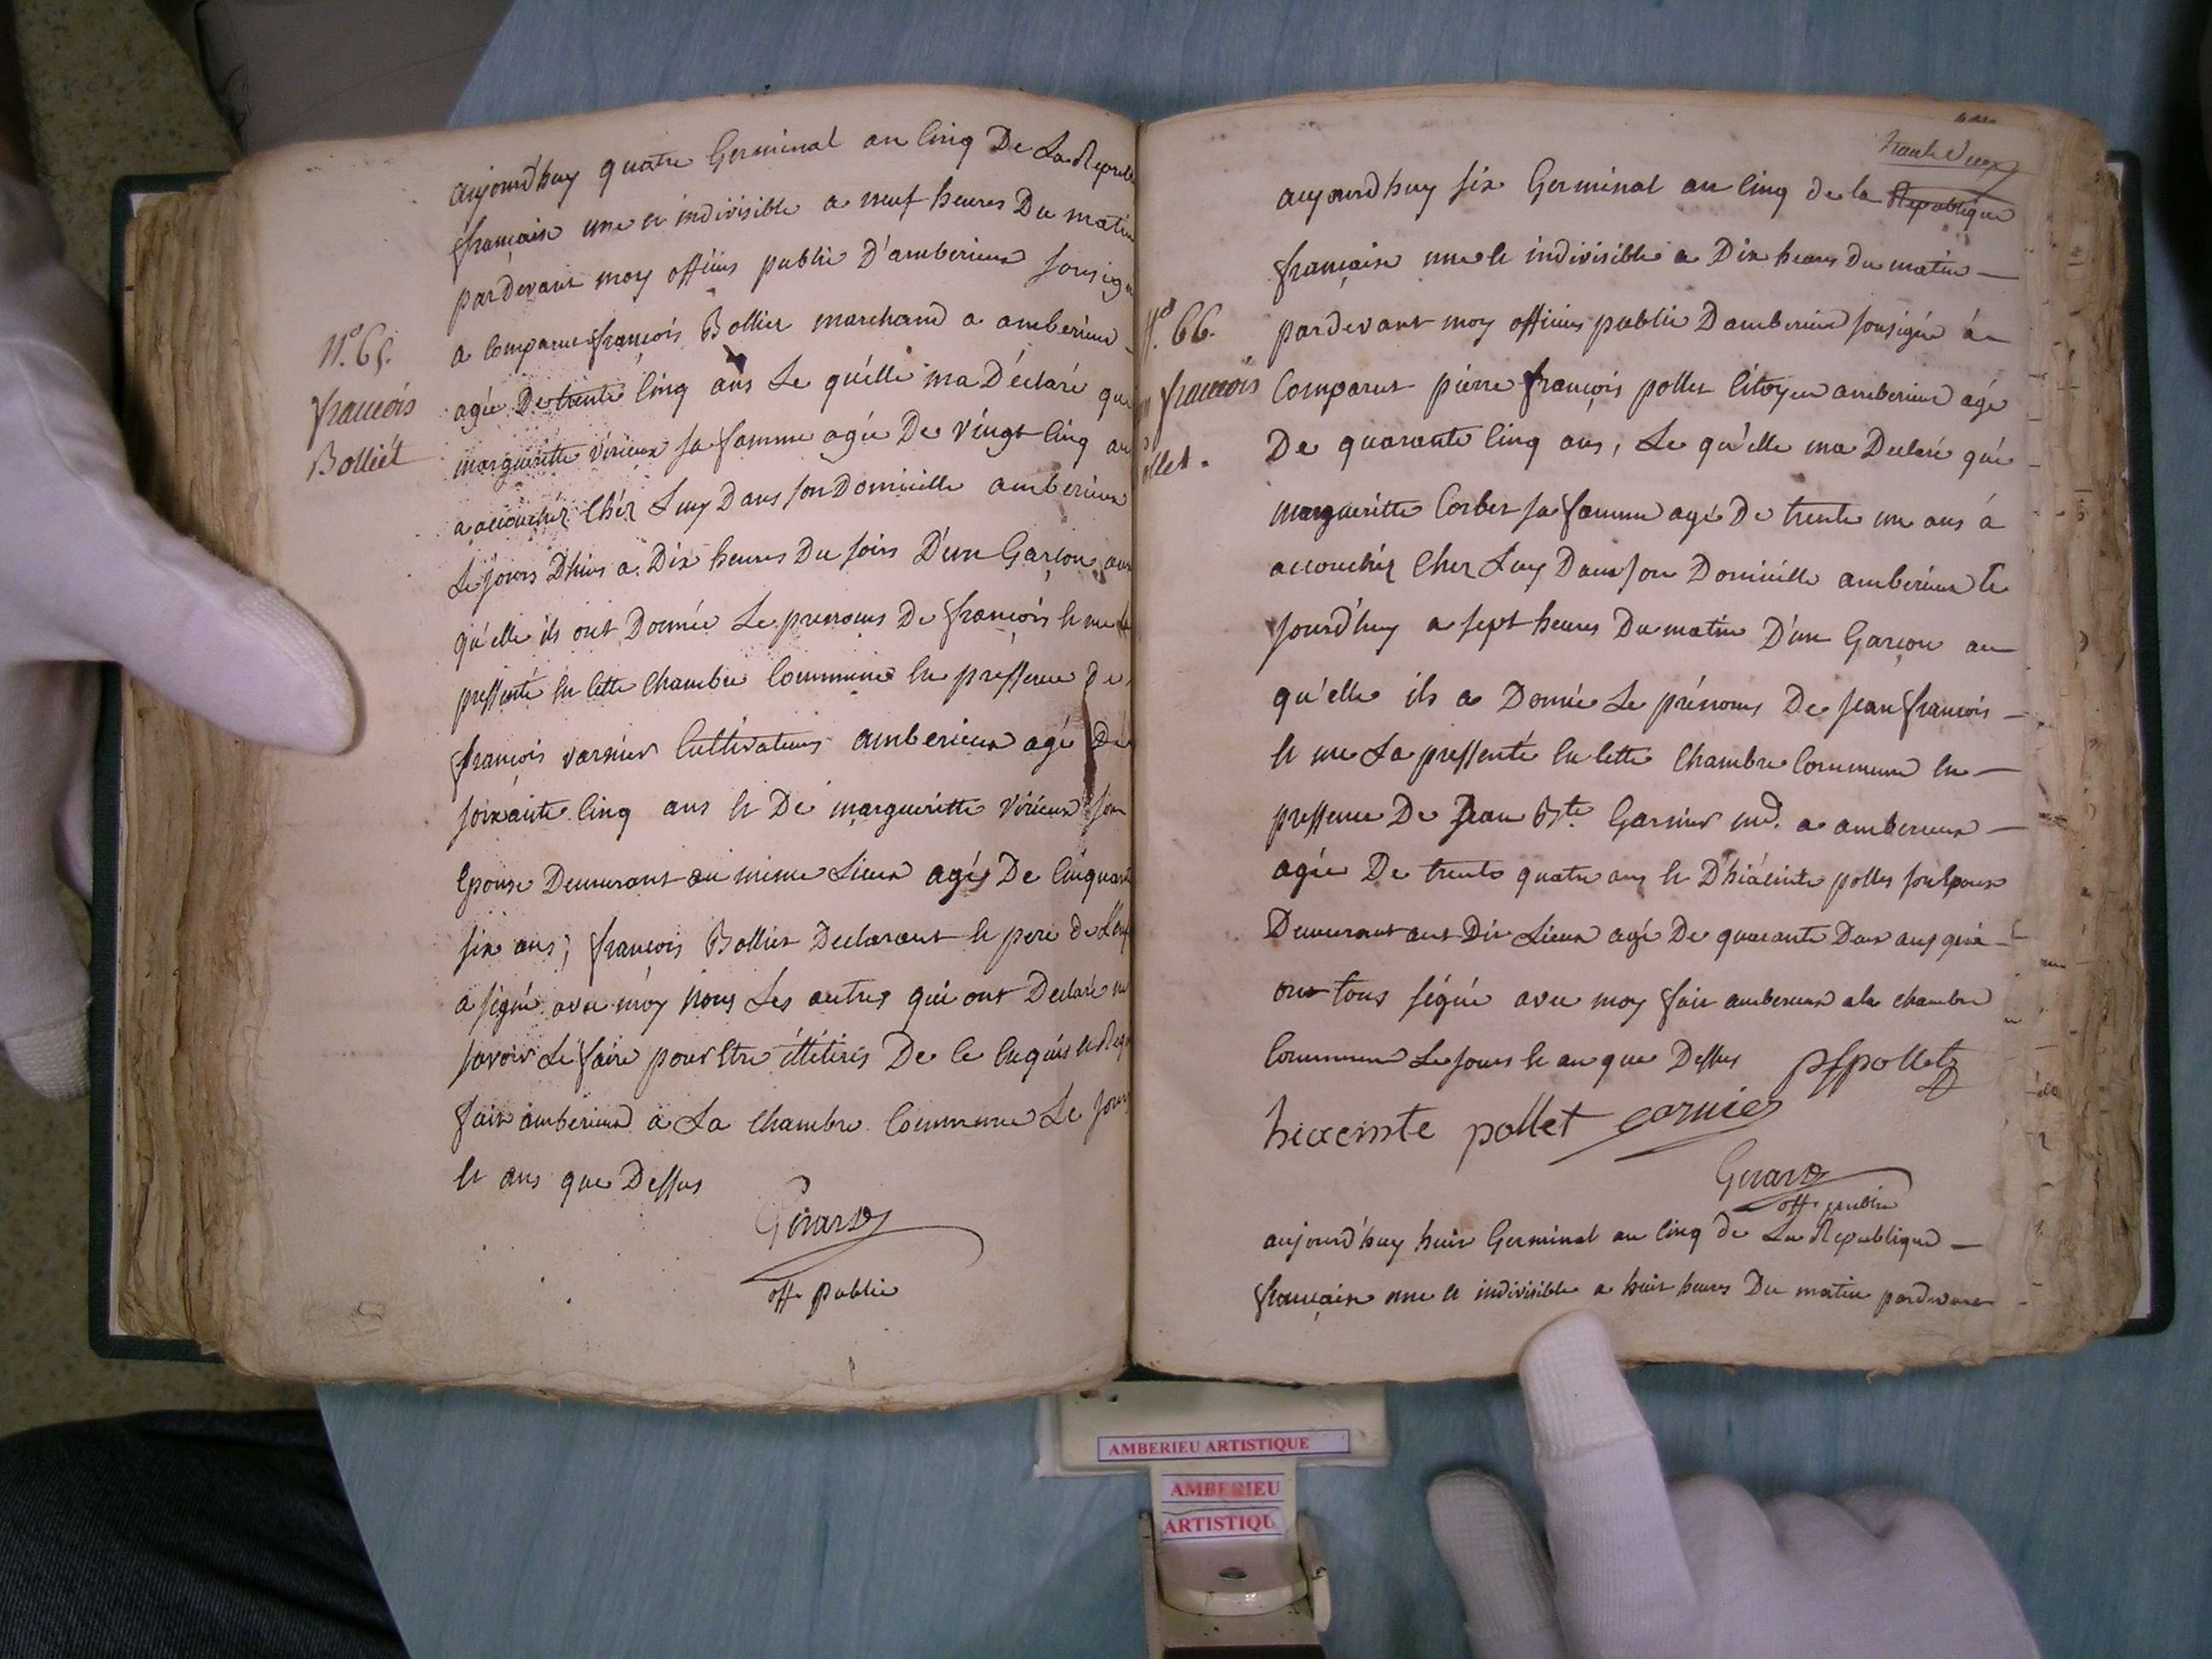 aujourd'huy quatre Germinal an Cinq De La Repub
française une et indivisible a neuf heures Du matin
pardevant moy officies public D'amberieux sousig
a Comparue françois Bolliet marchand a amberieux
N.° 65.
françois
Bolliét
agée De trente Cinq ans Le quélle ma Déclaré que
margueritte vérieux sa famme agée De vingt Cinq an
a accouchéz Chéz Luy Dans son Domicille amberieux
Le jours D'hiers a Dix heures Du soirs D'un Garçon au
qu'elle ils ont Donnée Le prenoms De françois et me
pressenté En Cette Chambre Commune En pressence De
françois varnier Cultivateurs amberieux agé De
soixante Cinq ans Et De margueritte vérieux son
Epouse Demeurant au même Lieux agés De Cinquante
six ans; françois Bolliet Declarant et pere de L'enf
a signé avec moy nous Les autres qui ont Declaré ne
savoir Le faire pour Etre illiterés De Ce Enquis et Req
fait amberieux a La Chambre Commune Le jours
Et ans que Dessus
Girard
off. public
aujourd'huy six Germinal an Cinq de la Republique
française une et indivisible a Dix heures Du matin
N.° 66.
françois
ollet.
pardevant moy officies public D'amberieux sousigné á
Comparut pierre françois pollet Citoyen amberieux agé
De quarante Cinq ans, Le qu'elle ma Declaré que
margueritte Corbet sa famme agé De trente un ans á
accouchéz Chez Luy Dans son Domicille amberieux Ce
jourd'huy a sept heures Du matin D'un Garçon au
qu'elle ils a Donnée Le prénoms De jean françois
Et me La pressenté En Cette Chambre Commune En
pressence De Jean Bte. Garnier md. a amberieux
agée De trente quatre ans Et D'hiácinte pollet son Epouse
Demeurant aut Dit Lieux agé De quarante Deux ans qui
ont tous signé avec moy fait amberieux a la chambre
Commune Le jours Et an que Dessus pfpollet
hiaceinte pollet garnier
Girard
off. public
aujourd'huy huit Germinal an Cinq de La Republique
française une et indivisible a huit heures Du matin pardevant
AMBERIEU ARTISTIQUE
AMBERIEU
ARTISTIQU